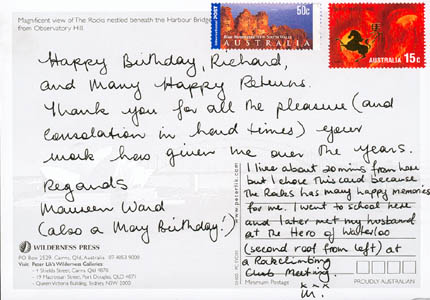 Magnificent view of The Rocks nestled beneath the Harbour Bridge
from Observatory Hill.
50c
AUSTRALIA
AUSTRALIA 15c
Happy Birthday, Richard,
and Many Happy Returns.
Thank you for all the pleasure (and
consolation in hard times) your
work has given me over the years.
Regards
Maureen Ward
(also a May Birthday!)
I live about 20 mins from here
but I chose this card because
the Rocks has many happy memories
for me. I went to school here
and later met my husband
at the Hero of Waterloo
(second roof from left) at
a Rockclimbing
Club Meeting.
x x x
M.
WILDERNESS PRESS
PO BOX 2529, Cairns, Qld, Australia
Visit Peter Lik's Wilderness Galleries:
- 4 Shields Street, Cairns Qld 4870
- 19 Macrossan Street, Port Douglas, QLD 4871
- Queen Victoria Building, Sydney NSW 2000
www.peterlik.com
Minimum Postage